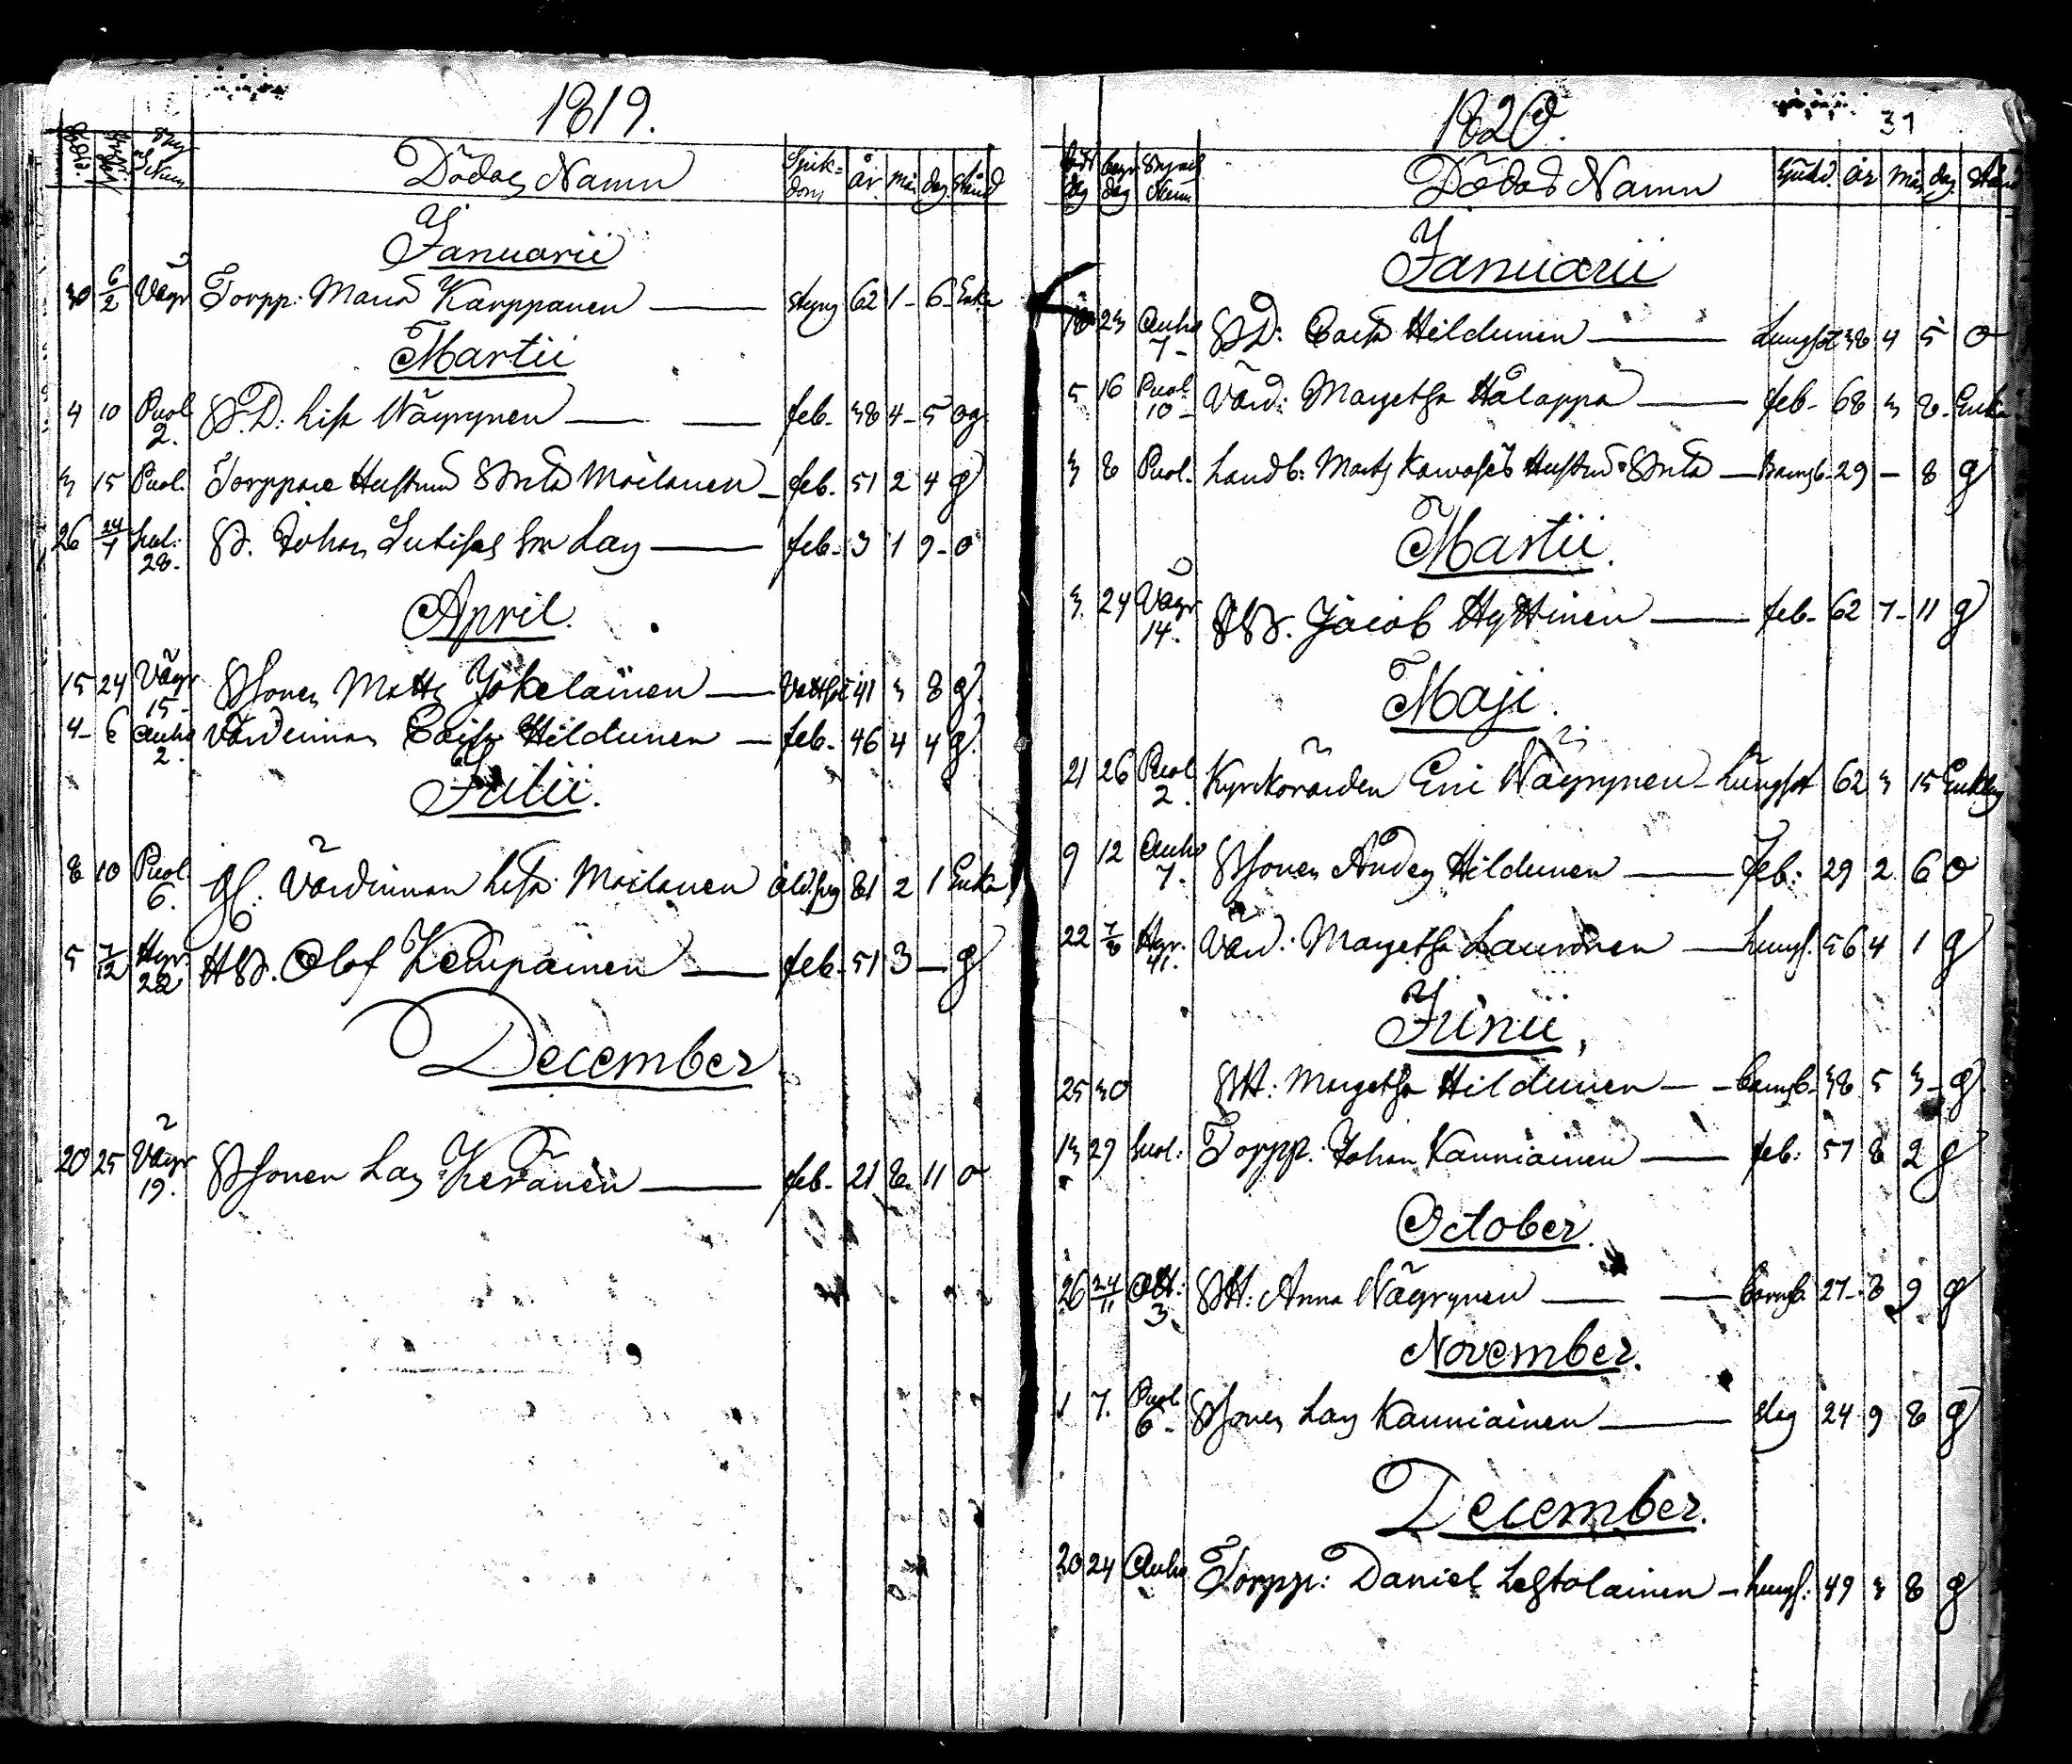 1819.
Dödas Namn Sjuk=dom år. mån dag. stånd
Januarii
30 6/2 Vägr Torpp: Maria Karppanen — styng 62 1 - 6 - Enka
Martii
4 10 Puol. 2. BD: Lisa Näyrynen — feb. 38 4 - 5 og.
3 15 Puol. Torppare Hustrun Brita Moilanen - feb. 51 2 4 g
26 24/7 28. B. Johan son Lars — feb. 3 1 9 - o
April.
15 24 Vägr 15. Bsonen Matts Jokelainen — 41 3 8 g.
4 - 6 Auho 2. Värdinnan Caisa Hildunen — feb. 46 4 4 g.
Julii.
8 10 Puol. 6. Gl: Värdinnan Lisa Moilanen 81 2 1 Enka
5 7/12 Hyr. 22 HB. Olof Kemppainen — feb. 51 3 — g
December
20 25 Vägr 19. Bsonen Lars Keränen — feb. 21 8. 11 o
1820.
31
Dödas Namn Sjukd. år mån dag. stånd
Januarii
18 23 Auho 7 - BD: Caisa Hildunen — Lungsot 38 4 5 o
5 16 Puol. 10 - Värd: Margetha Halappa — feb - 68 3 8 - Enka
3 8 Puol. Landb: Matts Hustru Brita — Barnsb. 29 - 8 g
Martii.
3. 24 Vägr 14. Jacob Hyttinen — feb - 62 7 - 11 g
Maji.
21 26 Puol. 2. Kyrkovärden Eric Näyrynen - Lungsot 62 3 15 Enkling
9 12 Auho 7. Bsonen Anders Hildunen — feb: 29 2 6 o
22 7/8 Hyr. 41. Värd: Margetha Lauronen — Lungs. 56 4 1 g
Junii,
25 30 BH: Margetha Hildunen — Barnsb. 38 5 3 - g.
13 29 Torpp: Johan Kanniainen — feb: 57 8 2 g
October.
26 24/11 3. BH: Anna Näyrynen — Barnsb. 27 - 8 9 g
November.
1 7. Puol. 6 - Bsonen Lars Kanniainen — slag 24 9 8 g
December.
20 24 Auho Torpp: Daniel Lehtolainen — Lungs: 49 3 8 g